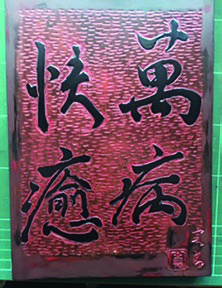 萬病
快癒